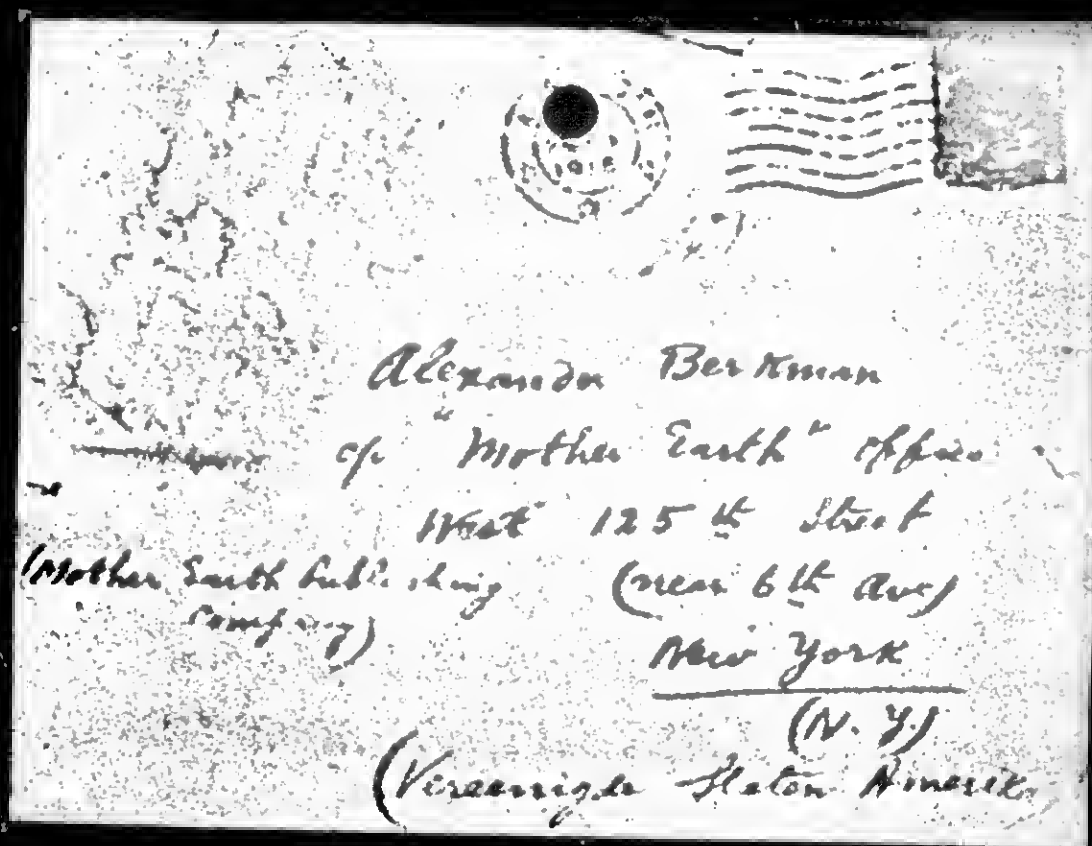 Alexander Berkman
c/o "Mother Earth" office
West 125th Street
(Mother Earth Publishing
(near 6th Ave)
Company)
New York
(N. Y.)
(Vereenigde Staten Amerika